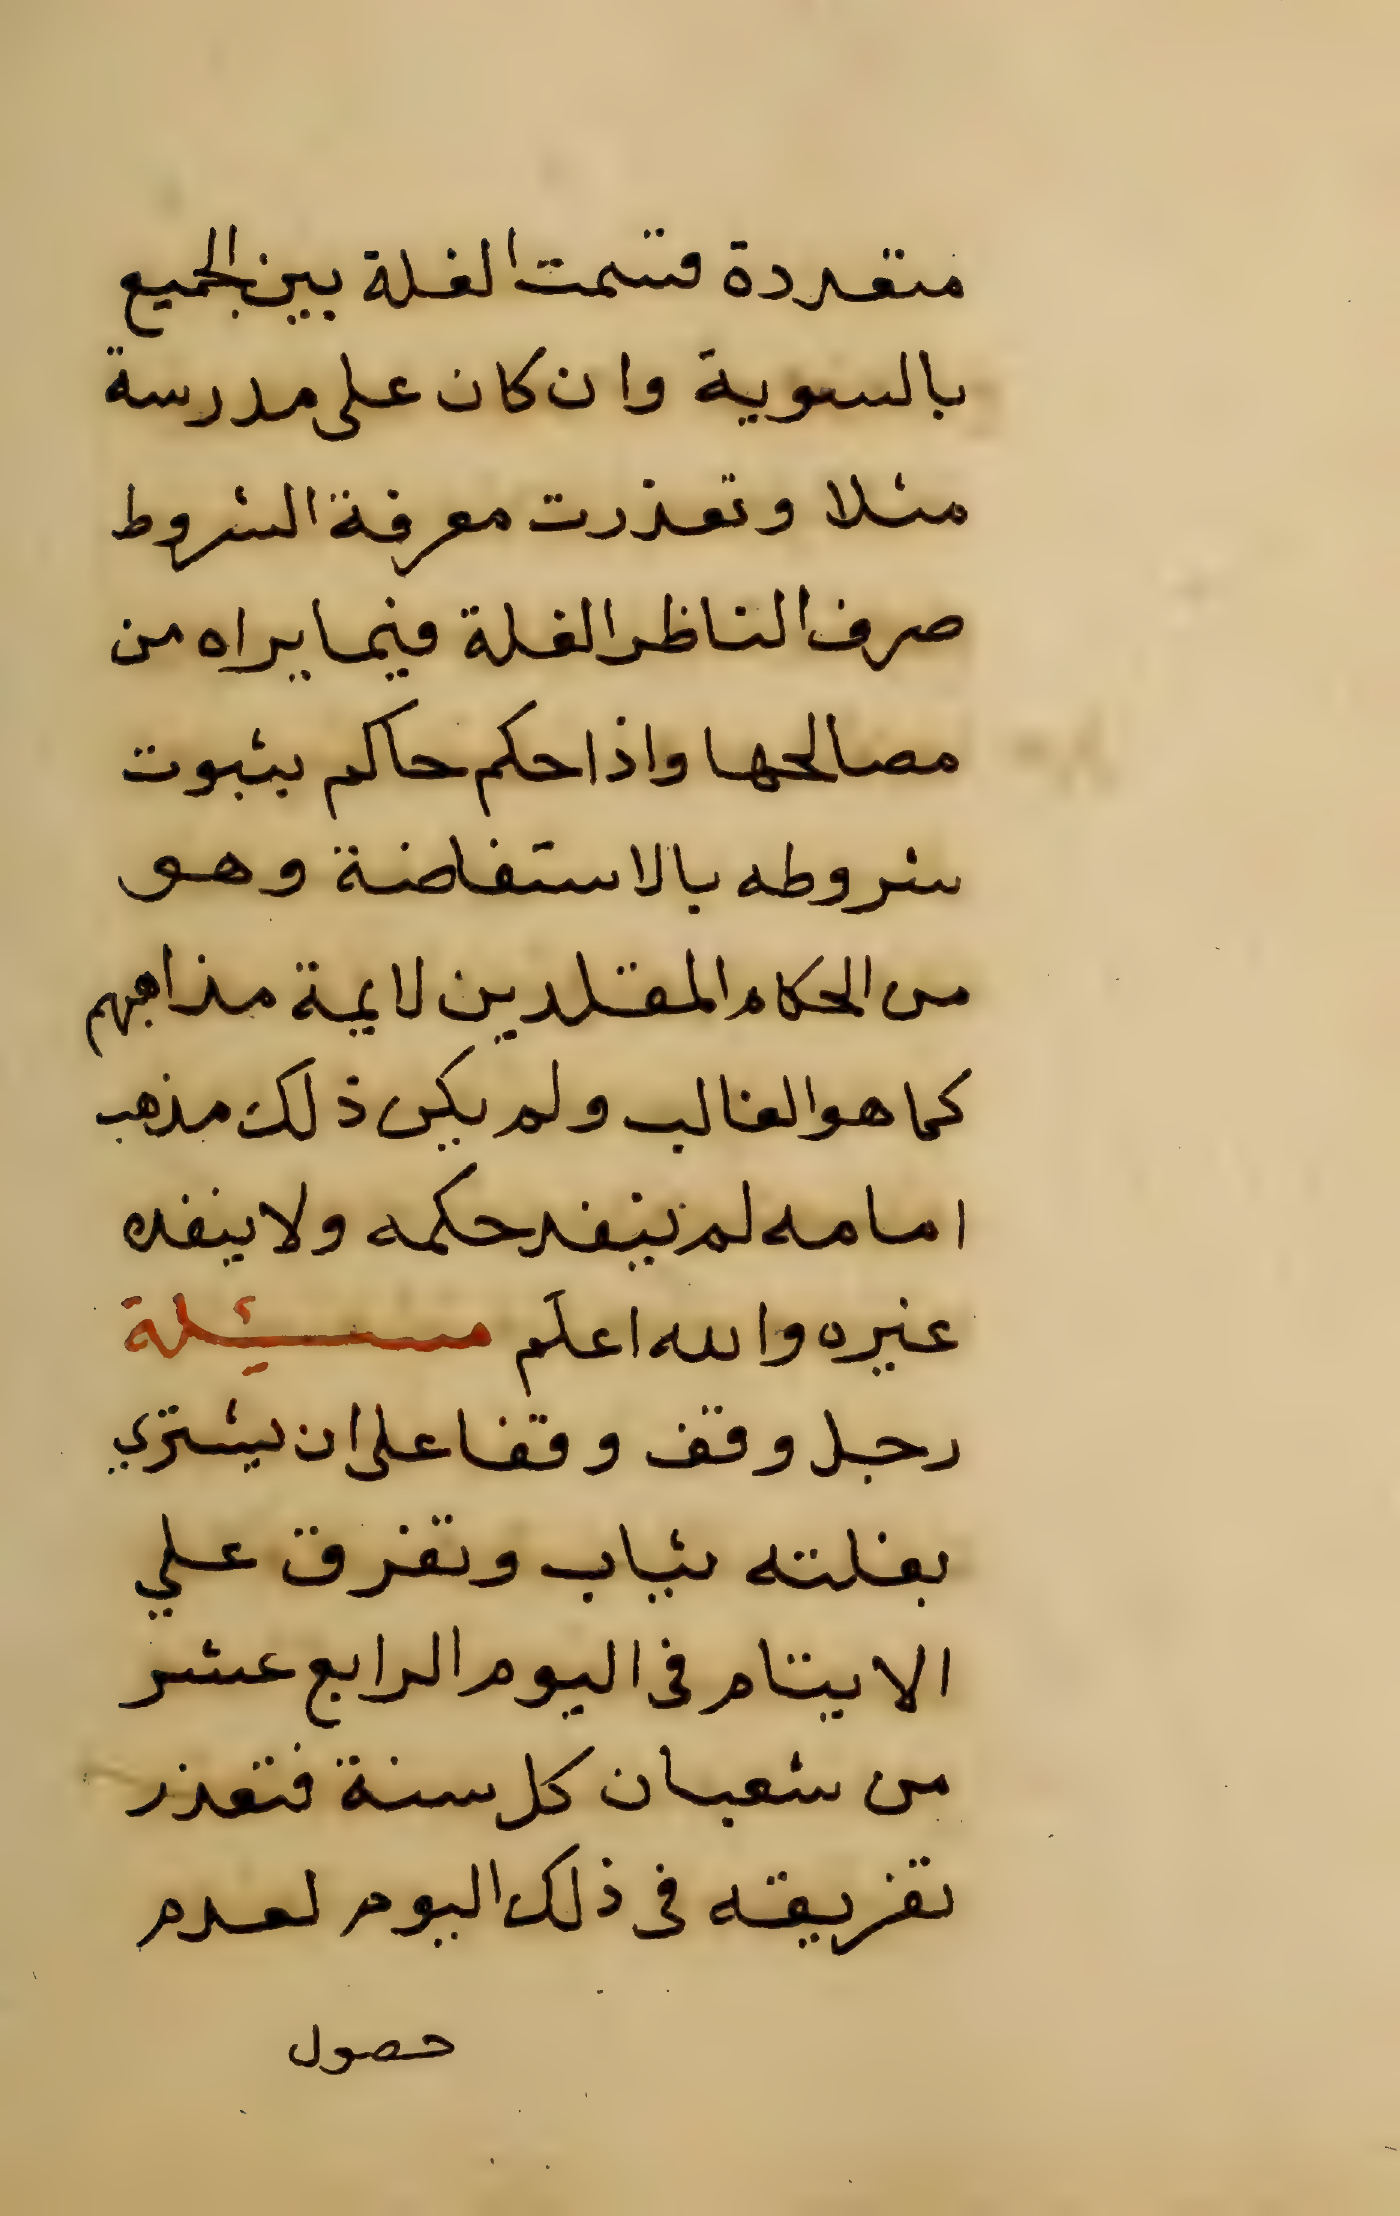 متعددة قسمت الغلة بين الجميع
بالسوية وان كان على مدرسة
مثلا وتعذرت معرفة الشروط
صرف الناظر الغلة فيما يراه من
مصالحها واذا حكم حاكم بثبوت
شروطه بالاستفاضة وهو
من الحكام المقلدين لايمة مذاهبهم
كما هو الغالب ولم يكن ذلك مذهب
امامه لم ينفذ حكمه ولا ينفذه
غيره والله اعلم مسئلة
رجل وقف وقفا على ان يشتري
بغلته ثياب وتفرق علي
الايتام فى اليوم الرابع عشر
من شعبان كل سنة فتعذر
تفريقه فى ذلك اليوم لعدم
حصول